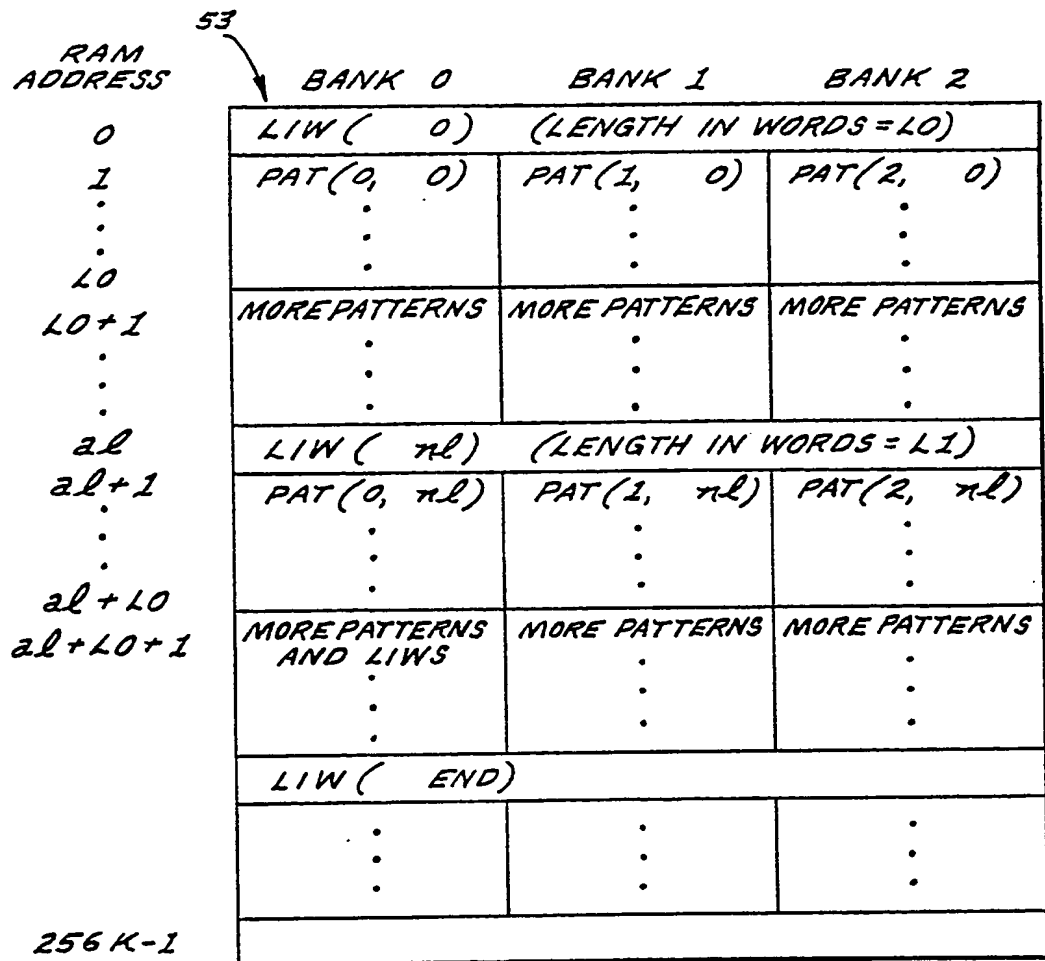 53
RAM
ADDRESS BANK 0 BANK 1 BANK 2
0 LIW ( 0) (LENGTH IN WORDS = L0)
1 PAT (0, 0) PAT (1, 0) PAT (2, 0)
L0
L0+1 MORE PATTERNS MORE PATTERNS MORE PATTERNS
al LIW ( nl) (LENGTH IN WORDS = L1)
al+1 PAT (0, nl) PAT (1, nl) PAT (2, nl)
al+L0
al+L0+1 MORE PATTERNS MORE PATTERNS MORE PATTERNS
AND LIWS
LIW ( END)
256K-1